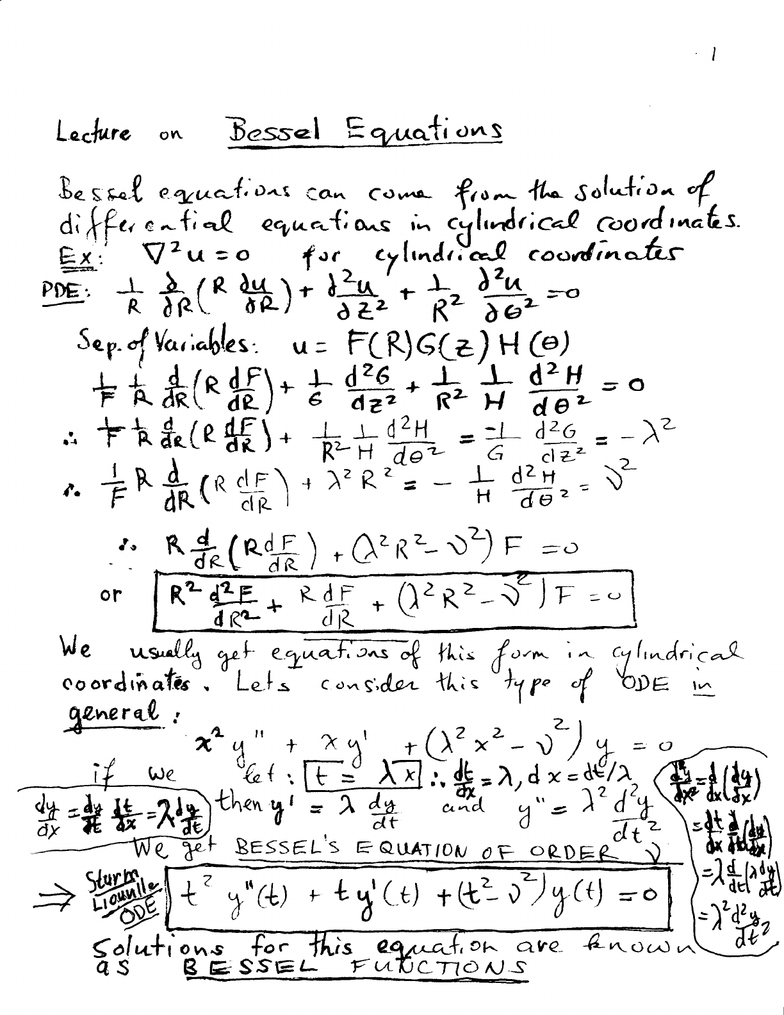 1
Lecture on Bessel Equations
Bessel equations can come from the solution of
differential equations in cylindrical coordinates.
Ex: ∇²u = 0 for cylindrical coordinates
PDE: 1/R ∂/∂R (R ∂u/∂R) + ∂²u/∂z² + 1/R² ∂²u/∂θ² = 0
Sep. of Variables: u = F(R)G(z)H(θ)
1/F 1/R d/dR (R dF/dR) + 1/G d²G/dz² + 1/R² 1/H d²H/dθ² = 0
∴ 1/F 1/R d/dR (R dF/dR) + 1/R² 1/H d²H/dθ² = -1/G d²G/dz² = -λ²
∴ 1/F R d/dR (R dF/dR) + λ²R² = - 1/H d²H/dθ² = ν²
∴ R d/dR (R dF/dR) + (λ²R² - ν²) F = 0
or R² d²F/dR² + R dF/dR + (λ²R² - ν²) F = 0
We usually get equations of this form in cylindrical
coordinates. Lets consider this type of ODE in
general:
x² y'' + x y' + (λ²x² - ν²) y = 0
if we let: t = λx ∴ dt/dx = λ, dx = dt/λ
dy/dx = dy/dt dt/dx = λ dy/dt
then y' = λ dy/dt and y'' = λ² d²y/dt²
d²y/dx² = d/dx (dy/dx)
= dt/dx d/dt (dy/dx)
= λ d/dt (λ dy/dt)
= λ² d²y/dt²
We get BESSEL'S EQUATION OF ORDER ν
⇒ Sturm Liounille ODE t² y''(t) + t y'(t) + (t² - ν²) y(t) = 0
Solutions for this equation are known
as BESSEL FUNCTIONS